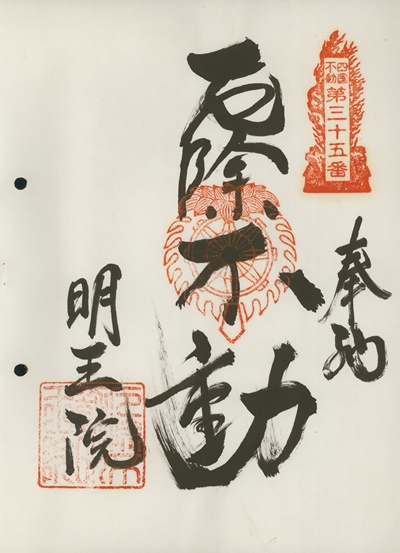 四国
不動
第三十五番
奉納
厄除不動
明王院